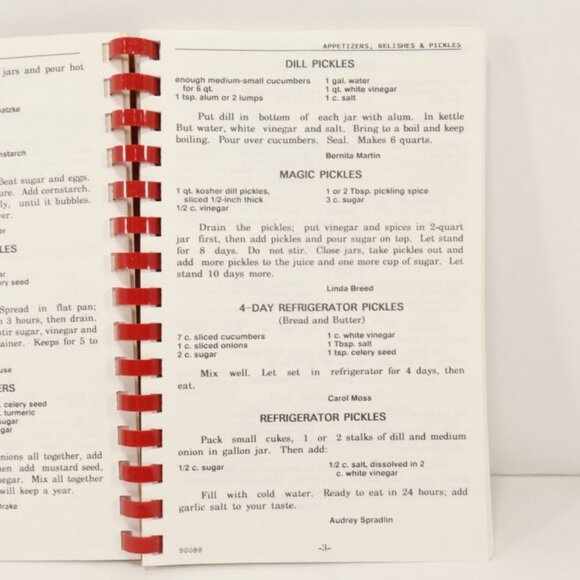 jars and pour hot
atzke
nstarch
Beat sugar and eggs.
ure. Add cornstarch.
ly, until it bubbles.
ver.
er
LES
ar
lery seed
Spread in flat pan;
o 3 hours, then drain.
stir sugar, vinegar and
ainer. Keeps for 5 to
use
ERS
. celery seed
. turmeric
ugar
gar
nions all together, add
hen add mustard seed,
negar. Mix all together
will keep a year.
Drake
APPETIZERS, RELISHES & PICKLES
DILL PICKLES
enough medium-small cucumbers 1 gal. water
for 6 qt. 1 qt. white vinegar
1 tsp. alum or 2 lumps 1 c. salt
Put dill in bottom of each jar with alum. In kettle
But water, white vinegar and salt. Bring to a boil and keep
boiling. Pour over cucumbers. Seal. Makes 6 quarts.
Bernita Martin
MAGIC PICKLES
1 qt. kosher dill pickles, 1 or 2 Tbsp. pickling spice
sliced 1/2-inch thick 3 c. sugar
1/2 c. vinegar
Drain the pickles; put vinegar and spices in 2-quart
jar first, then add pickles and pour sugar on top. Let stand
for 8 days. Do not stir. Close jars, take pickles out and
add more pickles to the juice and one more cup of sugar. Let
stand 10 days more.
Linda Breed
4-DAY REFRIGERATOR PICKLES
(Bread and Butter)
7 c. sliced cucumbers 1 c. white vinegar
1 c. sliced onions 1 Tbsp. salt
2 c. sugar 1 tsp. celery seed
Mix well. Let set in refrigerator for 4 days, then
eat.
Carol Moss
REFRIGERATOR PICKLES
Pack small cukes, 1 or 2 stalks of dill and medium
onion in gallon jar. Then add:
1/2 c. sugar 1/2 c. salt, dissolved in 2
c. white vinegar
Fill with cold water. Ready to eat in 24 hours; add
garlic salt to your taste.
Audrey Spradlin
90089 -3-